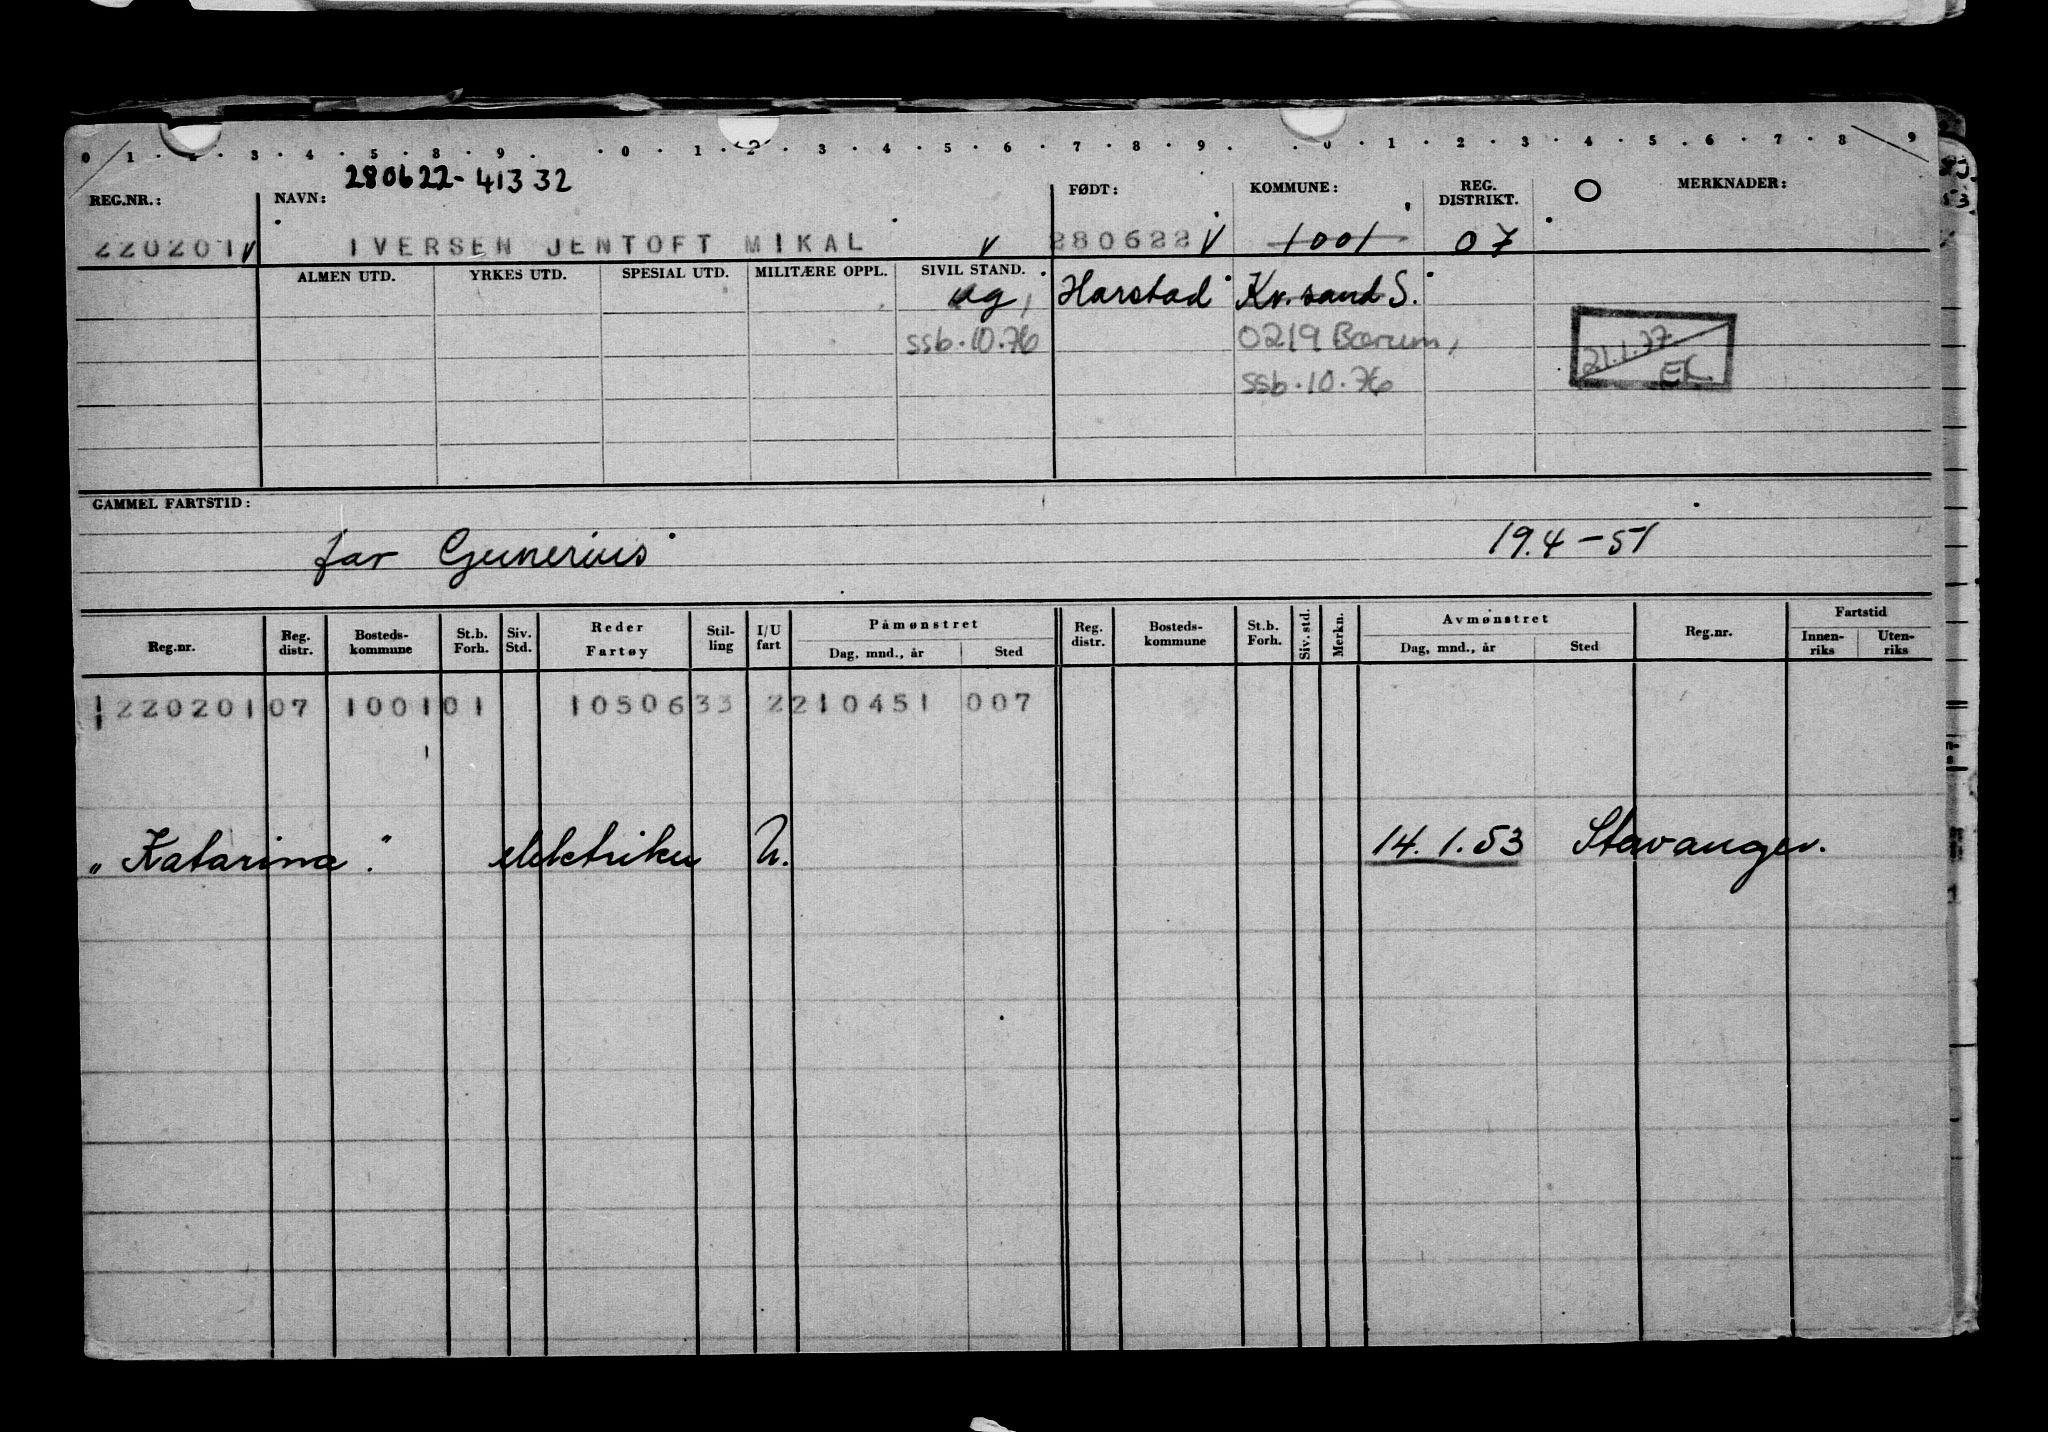 0 1 . 2 . 3 . 4 . 5 . 8 . 9 . . 0 . 1 . 2 . 3 . 4 . 5 . 6 . 7 . 8 . 9 . . 0 . 1 . 2 . 3 . 4 . 5 . 6 . 7 . 8 . 9
280622-41332
REG.NR.: NAVN: FØDT: KOMMUNE: REG. DISTRIKT. O MERKNADER:
220201 V IVERSEN JENTOFT MIKAL V 280622 V 1001 07
ALMEN UTD. YRKES UTD. SPESIAL UTD. MILITÆRE OPPL. SIVIL STAND.
ug, Harstad Kr. sand S.
ssb. 10.76 0219 Bærum,
21.1.77
ssb. 10.76 EK
GAMMEL FARTSTID:
far Gunerius 19.4-51
Reg.nr. Reg. distr. Bosteds-kommune St.b. Forh. Siv. Std. Reder Fartøy Stil-ling I/U fart Påmønstret Dag, mnd., år Sted Reg. distr. Bosteds-kommune St.b. Forh. Siv. std. Merkn. Avmønstret Dag, mnd., år Sted Reg.nr. Fartstid Innen-riks Uten-riks
220201 07 1001 01 1050633 2 210451 007
"Katarina". elektriker U. 14.1.53 Stavanger.